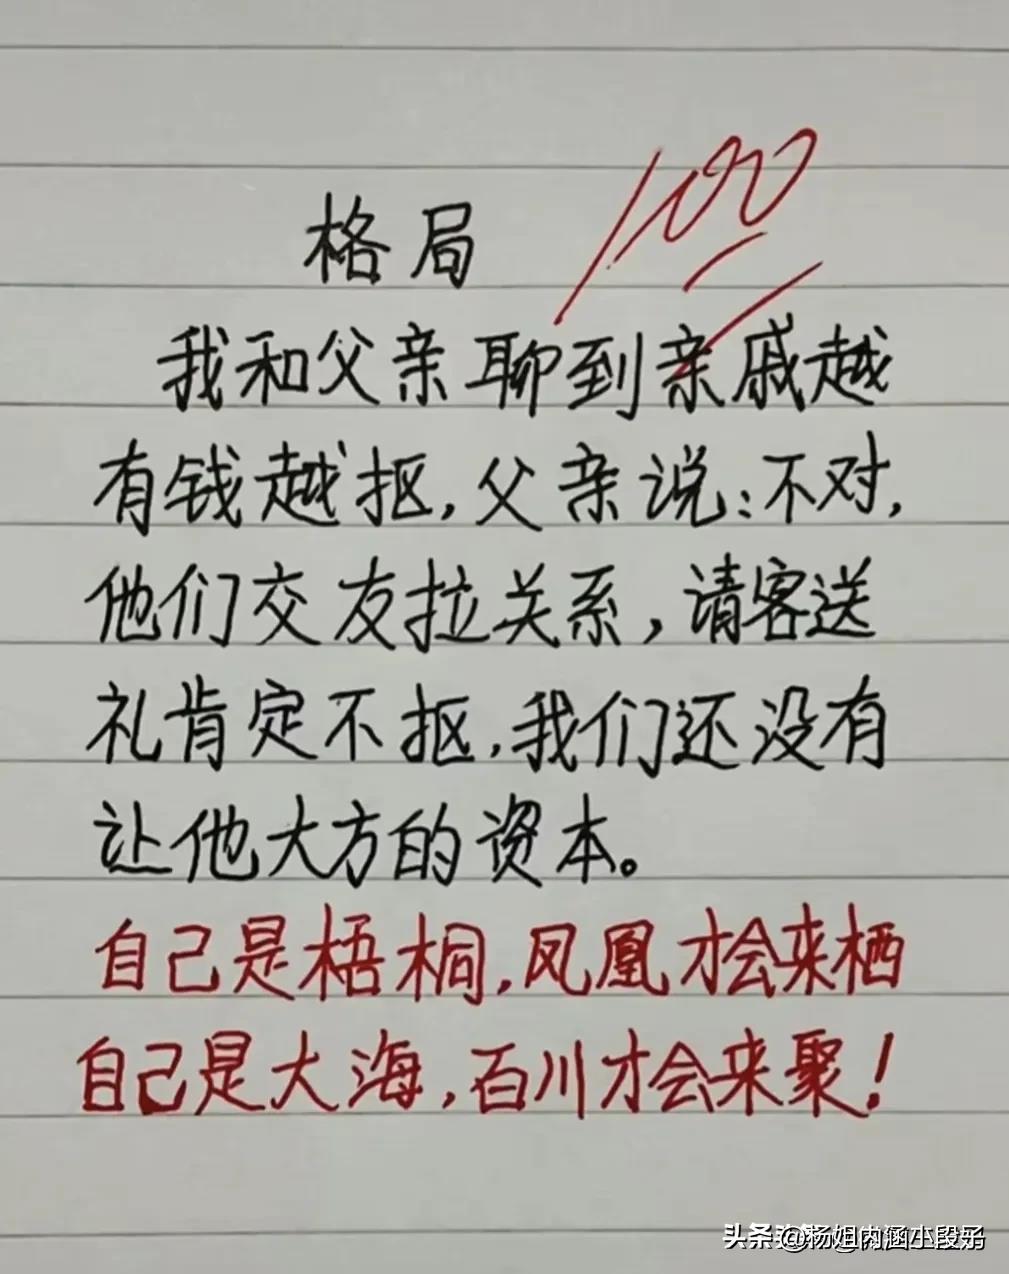 格局
100
我和父亲聊到亲戚越
有钱越抠,父亲说:不对,
他们交友拉关系,请客送
礼肯定不抠,我们还没有
让他大方的资本。
自己是梧桐,凤凰才会来栖
自己是大海,百川才会来聚!
头条 @杨姐内涵小段子